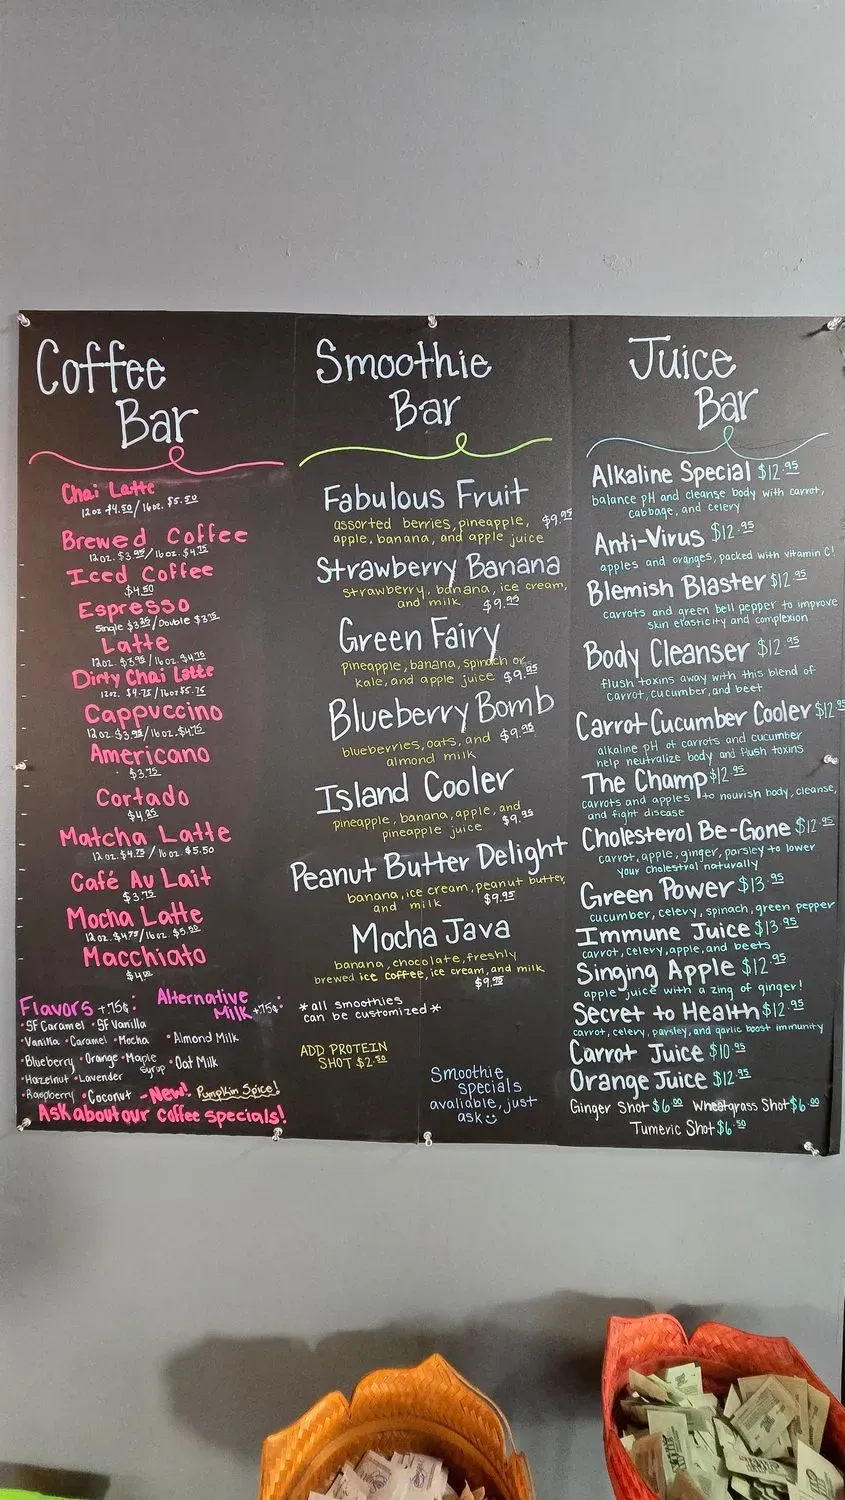 Coffee
Bar
Chai Latte
12oz $4.50/16oz. $5.50
Brewed Coffee
12oz. $3.95/16oz. $4.75
Iced Coffee
$4.50
Espresso
Single $3.25/Double $3.75
Latte
12oz. $3.95/16oz. $4.75
Dirty Chai Latte
12oz. $4.75/16oz $5.75
Cappuccino
12oz. $3.95/16oz. $4.75
Americano
$3.75
Cortado
$4.25
Matcha Latte
12oz. $4.75/16oz. $5.50
Café Au Lait
$3.75
Mocha Latte
12oz. $4.75/16oz. $5.50
Macchiato
$4.00
Flavors +.75¢:
• SF Caramel • SF Vanilla
• Vanilla • Caramel • Mocha
• Blueberry • Orange • Maple Syrup
• Hazelnut • Lavender
• Raspberry • Coconut - New! Pumpkin Spice!
Alternative
Milk +.75¢:
• Almond Milk
• Oat Milk
Ask about our coffee specials!
Smoothie
Bar
Fabulous Fruit
assorted berries, pineapple, $9.95
apple, banana, and apple juice
Strawberry Banana
strawberry, banana, ice cream,
and milk $9.95
Green Fairy
pineapple, banana, spinach or
kale, and apple juice $9.95
Blueberry Bomb
blueberries, oats, and $9.95
almond milk
Island Cooler
pineapple, banana, apple, and
pineapple juice $9.95
Peanut Butter Delight
banana, ice cream, peanut butter,
and milk $9.95
Mocha Java
banana, chocolate, freshly
brewed ice coffee, ice cream, and milk
$9.95
*all smoothies
can be customized*
ADD PROTEIN
SHOT $2.50
Smoothie
specials
avaliable, just
ask
Juice
Bar
Alkaline Special $12.95
balance pH and cleanse body with carrot,
cabbage, and celery
Anti-Virus $12.95
apples and oranges, packed with vitamin C!
Blemish Blaster $12.95
carrots and green bell pepper to improve
skin elasticity and complexion
Body Cleanser $12.95
flush toxins away with this blend of
carrot, cucumber, and beet
Carrot Cucumber Cooler $12.95
alkaline pH of carrots and cucumber
help neutralize body and flush toxins
The Champ $12.95
carrots and apples to nourish body, cleanse,
and fight disease
Cholesterol Be-Gone $12.95
carrot, apple, ginger, parsley to lower
your cholestrol naturally
Green Power $13.95
cucumber, celery, spinach, green pepper
Immune Juice $13.95
carrot, celery, apple, and beets
Singing Apple $12.95
apple juice with a zing of ginger!
Secret to Health $12.95
carrot, celery, parsley, and garlic boost immunity
Carrot Juice $10.95
Orange Juice $12.95
Ginger Shot $6.00 Wheatgrass Shot $6.00
Tumeric Shot $6.50